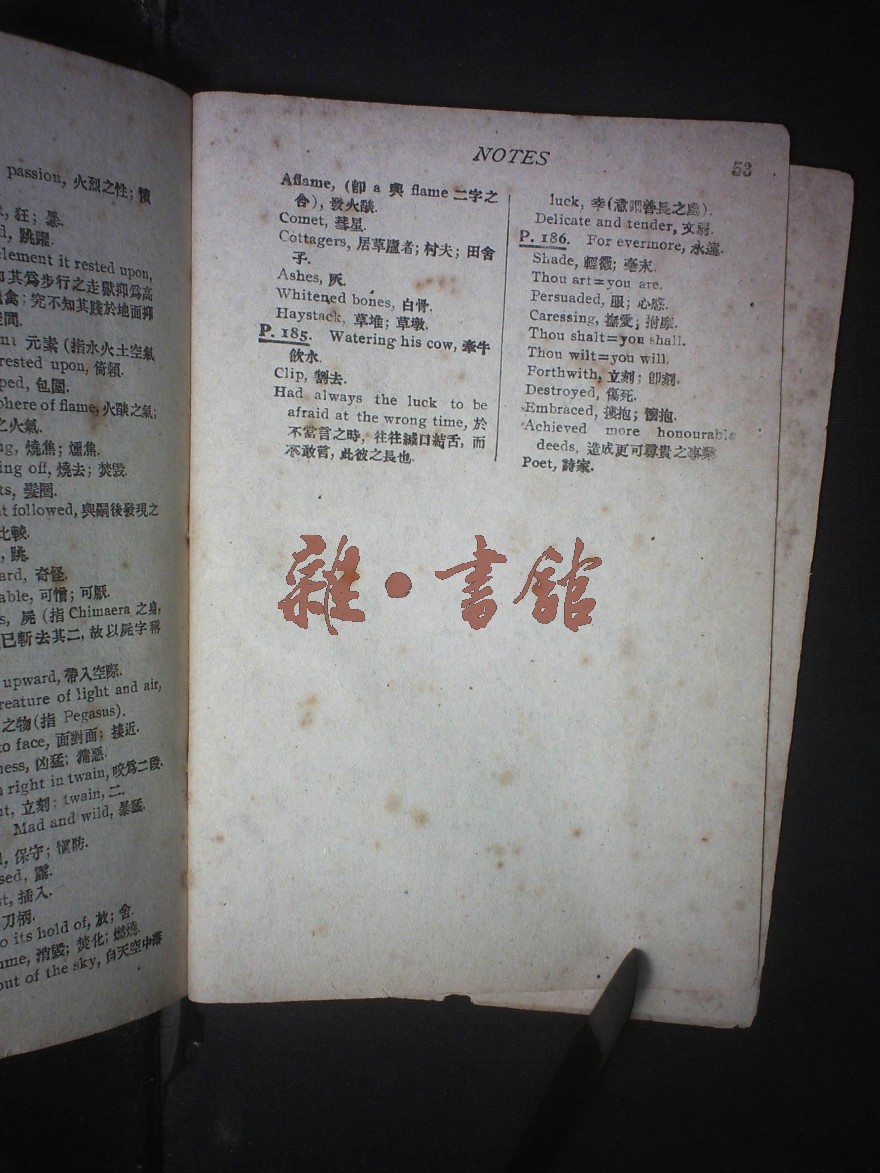 passion, 火烈之性; 憤
狂; 暴.
跳躍.
element it rested upon,
其爲步行之走獸抑爲高
禽; 究不知其踐於地面抑
間.
元素 (指水火土空氣
rested upon, 倚賴.
包圍.
sphere of flame, 火燄之氣;
之火氣.
燒焦; 燻焦.
off, 燒去; 焚毀.
髮圈.
followed, 與嗣後發現之
比較.
跳.
奇怪.
可憎; 可厭.
屍 (指 Chimaera 之身,
已斬去其二, 故以屍字稱
upward, 帶入空際.
creature of light and air,
之物 (指 Pegasus).
to face, 面對面; 接近.
凶猛;
right in twain, 咬爲二段.
立刻: twain, 二.
Mad and wild, 暴猛.
保守; 慎防.
露.
插入.
刀柄.
its hold of, 放; 舍.
消毀; 焚化; 燃燒.
out of the sky, 自天空中落
NOTES
53
Aflame, (卽 a 與 flame 二字之
合), 發火燄.
Comet, 彗星.
Cottagers, 居草廬者; 村夫; 田舍
子.
Ashes, 灰.
Whitened bones, 白骨.
Haystack, 草堆; 草墩.
P. 185. Watering his cow, 牽牛
飲水.
Clip, 割去.
Had always the luck to be
afraid at the wrong time, 於
不當言之時, 往往緘口結舌, 而
不敢言, 此彼之長也.
luck, 幸 (意謂善長之處).
Delicate and tender, 文弱.
P. 186. For evermore, 永遠.
Shade, 輕微; 毫末.
Thou art=you are.
Persuaded, 服; 心感.
Caressing, 撫愛;
Thou shalt=you shall.
Thou wilt=you will.
Forthwith, 立刻; 卽刻.
Destroyed, 傷死.
Embraced, 擁抱; 懷抱.
Achieved more honourable
deeds, 造成更可尊貴之事業
Poet, 詩家.
雜·書館